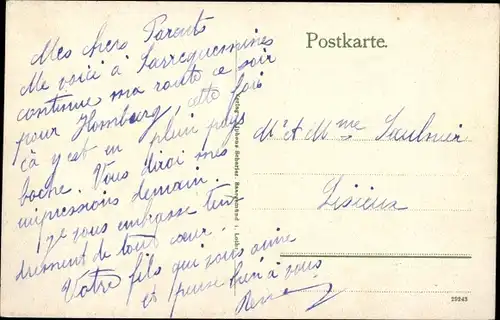 Mes chers Parents
Me voici à Sarreguemines
continue ma route ce soir
pour Hombourg, cette fois
çà y est en plein pays
boche. Vous dirai mes
impressions demain.
je vous embrasse ten
drement de tout cœur.
Votre fils qui vous aime
et pense bien à vous
René
Postkarte.
Mr et Mme Saulnier
Lisieux
29243